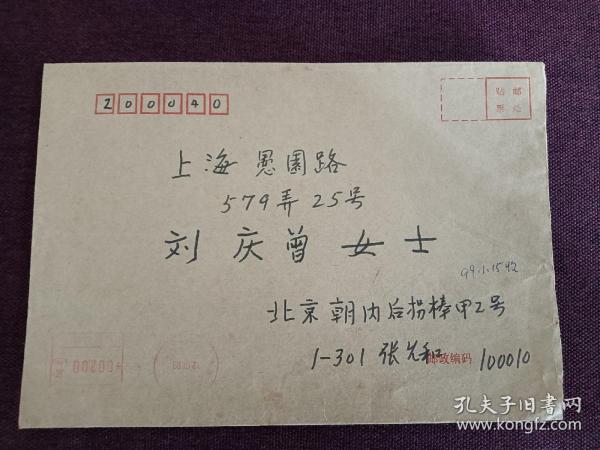 200040
贴邮
票处
上海 愚园路
579弄 25号
刘庆曾 女士
99.1.15收
北京朝内后拐棒甲2号
1-301 张允和
邮政编码 100010
00200
孔夫子旧书网
www.kongfz.com